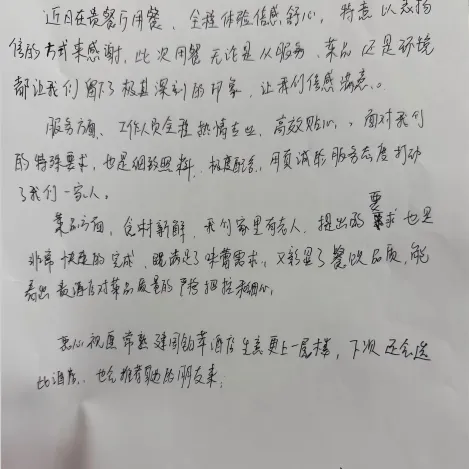 近日在贵餐厅用餐，全程体验倍感舒心，特意以表扬
信的方式来感谢，此次用餐无论是从服务、菜品还是环境
都让我们留下了极其深刻的印象，让我们倍感满意。
服务方面、工作人员全程热情专业，高效贴心，面对我们
的特殊要求，也是细致照料、极度配合，用真诚的服务态度打动
了我们一家人。
菜品方面，食材新鲜，我们家里有老人，提出的要求也是
非常快速的完成，既满足了味蕾需求，又彰显了餐饮品质，能
看出贵酒店对菜品质量的严格把控和细心。
衷心祝愿常熟建国铂萃酒店生意更上一层楼，下次还会选
此酒店，也会推荐身边的朋友来；